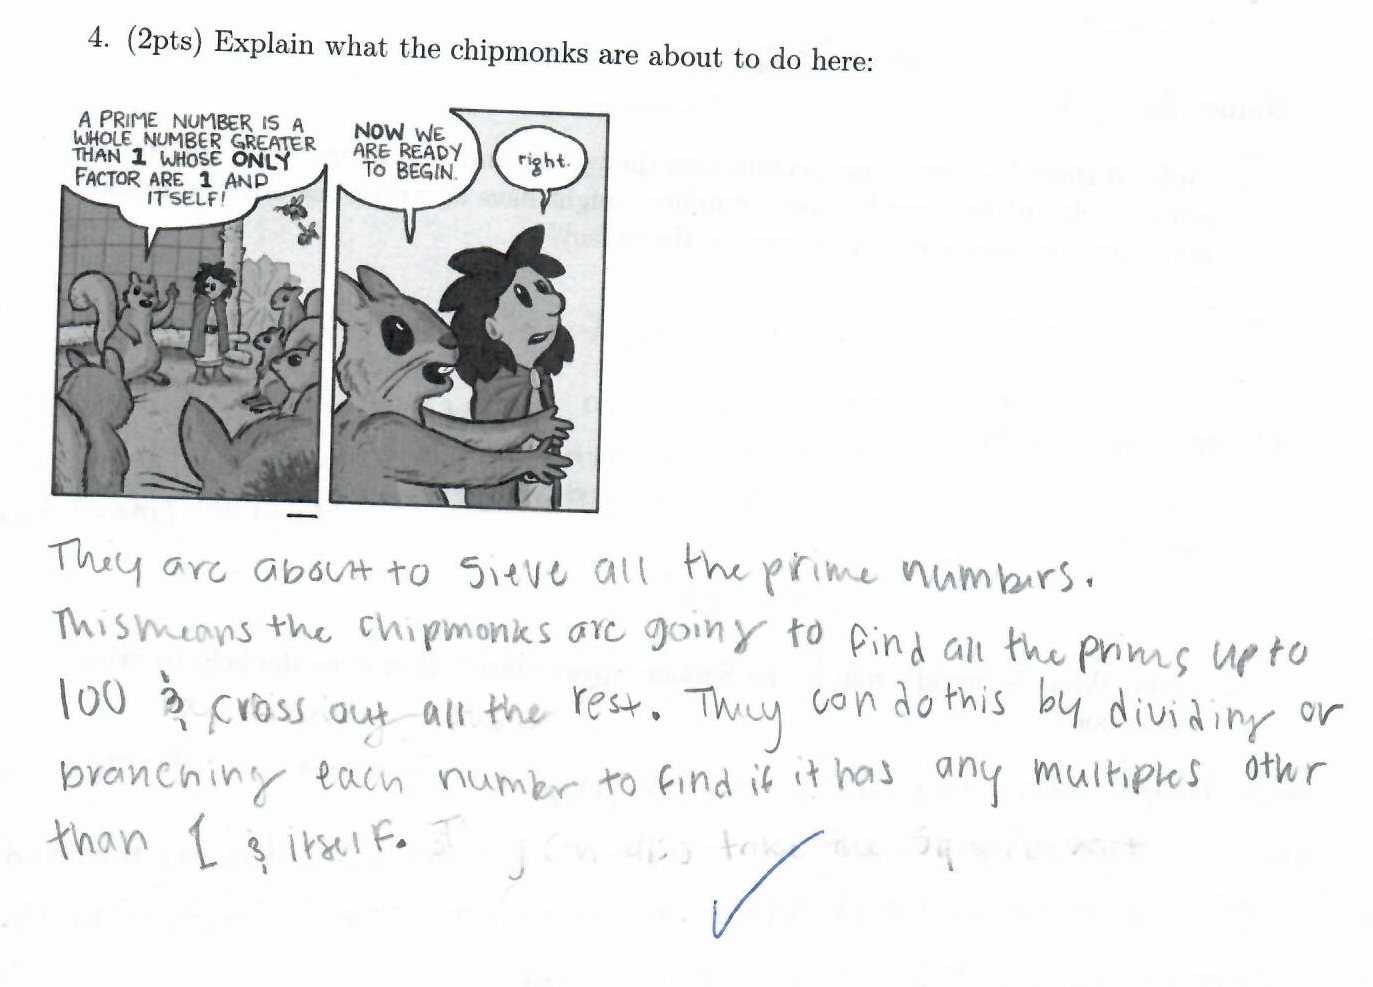 4. (2pts) Explain what the chipmonks are about to do here:
A PRIME NUMBER IS A
WHOLE NUMBER GREATER
THAN 1 WHOSE ONLY
FACTOR ARE 1 AND
ITSELF!
NOW WE
ARE READY
TO BEGIN.
right.
They are about to sieve all the prime numbers.
This means the chipmonks are going to find all the primes up to
100 & cross out all the rest. They can do this by dividing or
branching each number to find if it has any multiples other
than 1 & itself.